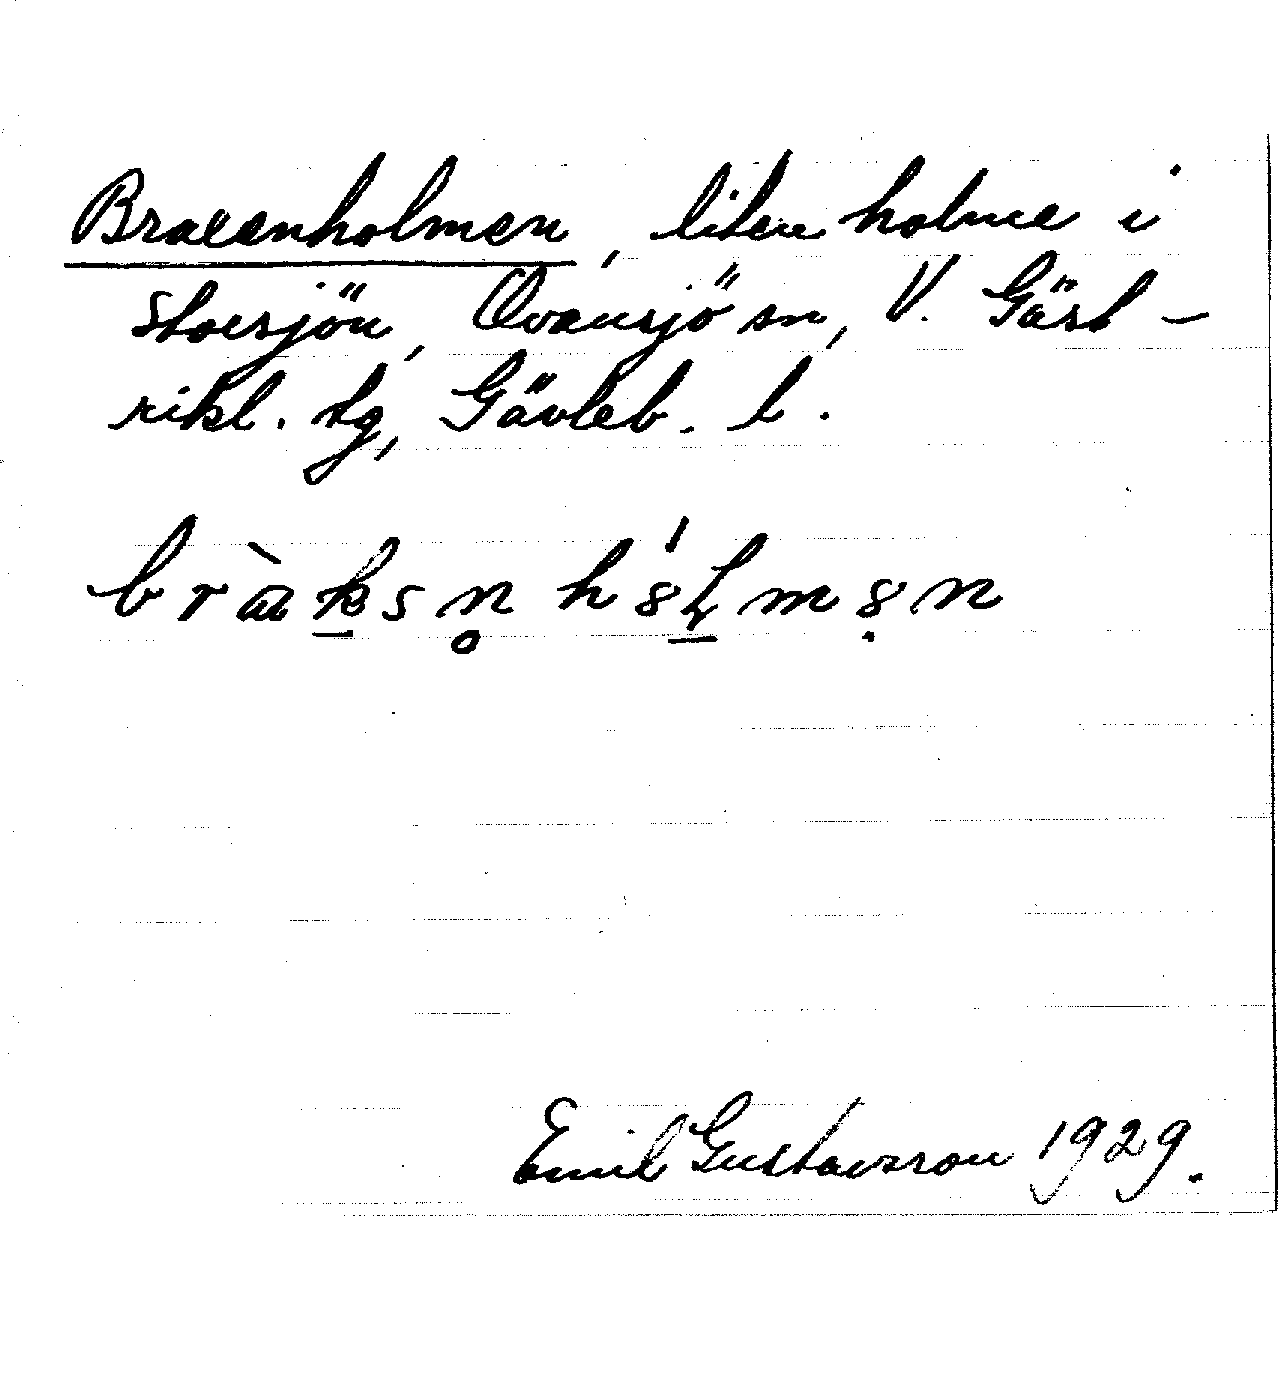 Braxenholmen, liten holme i
Storsjön, Ovansjö sn, V. Gäst-
rikl. tg, Gävleb. l.
bràksn̥ hólmən
Emil Gustavsson 1929.